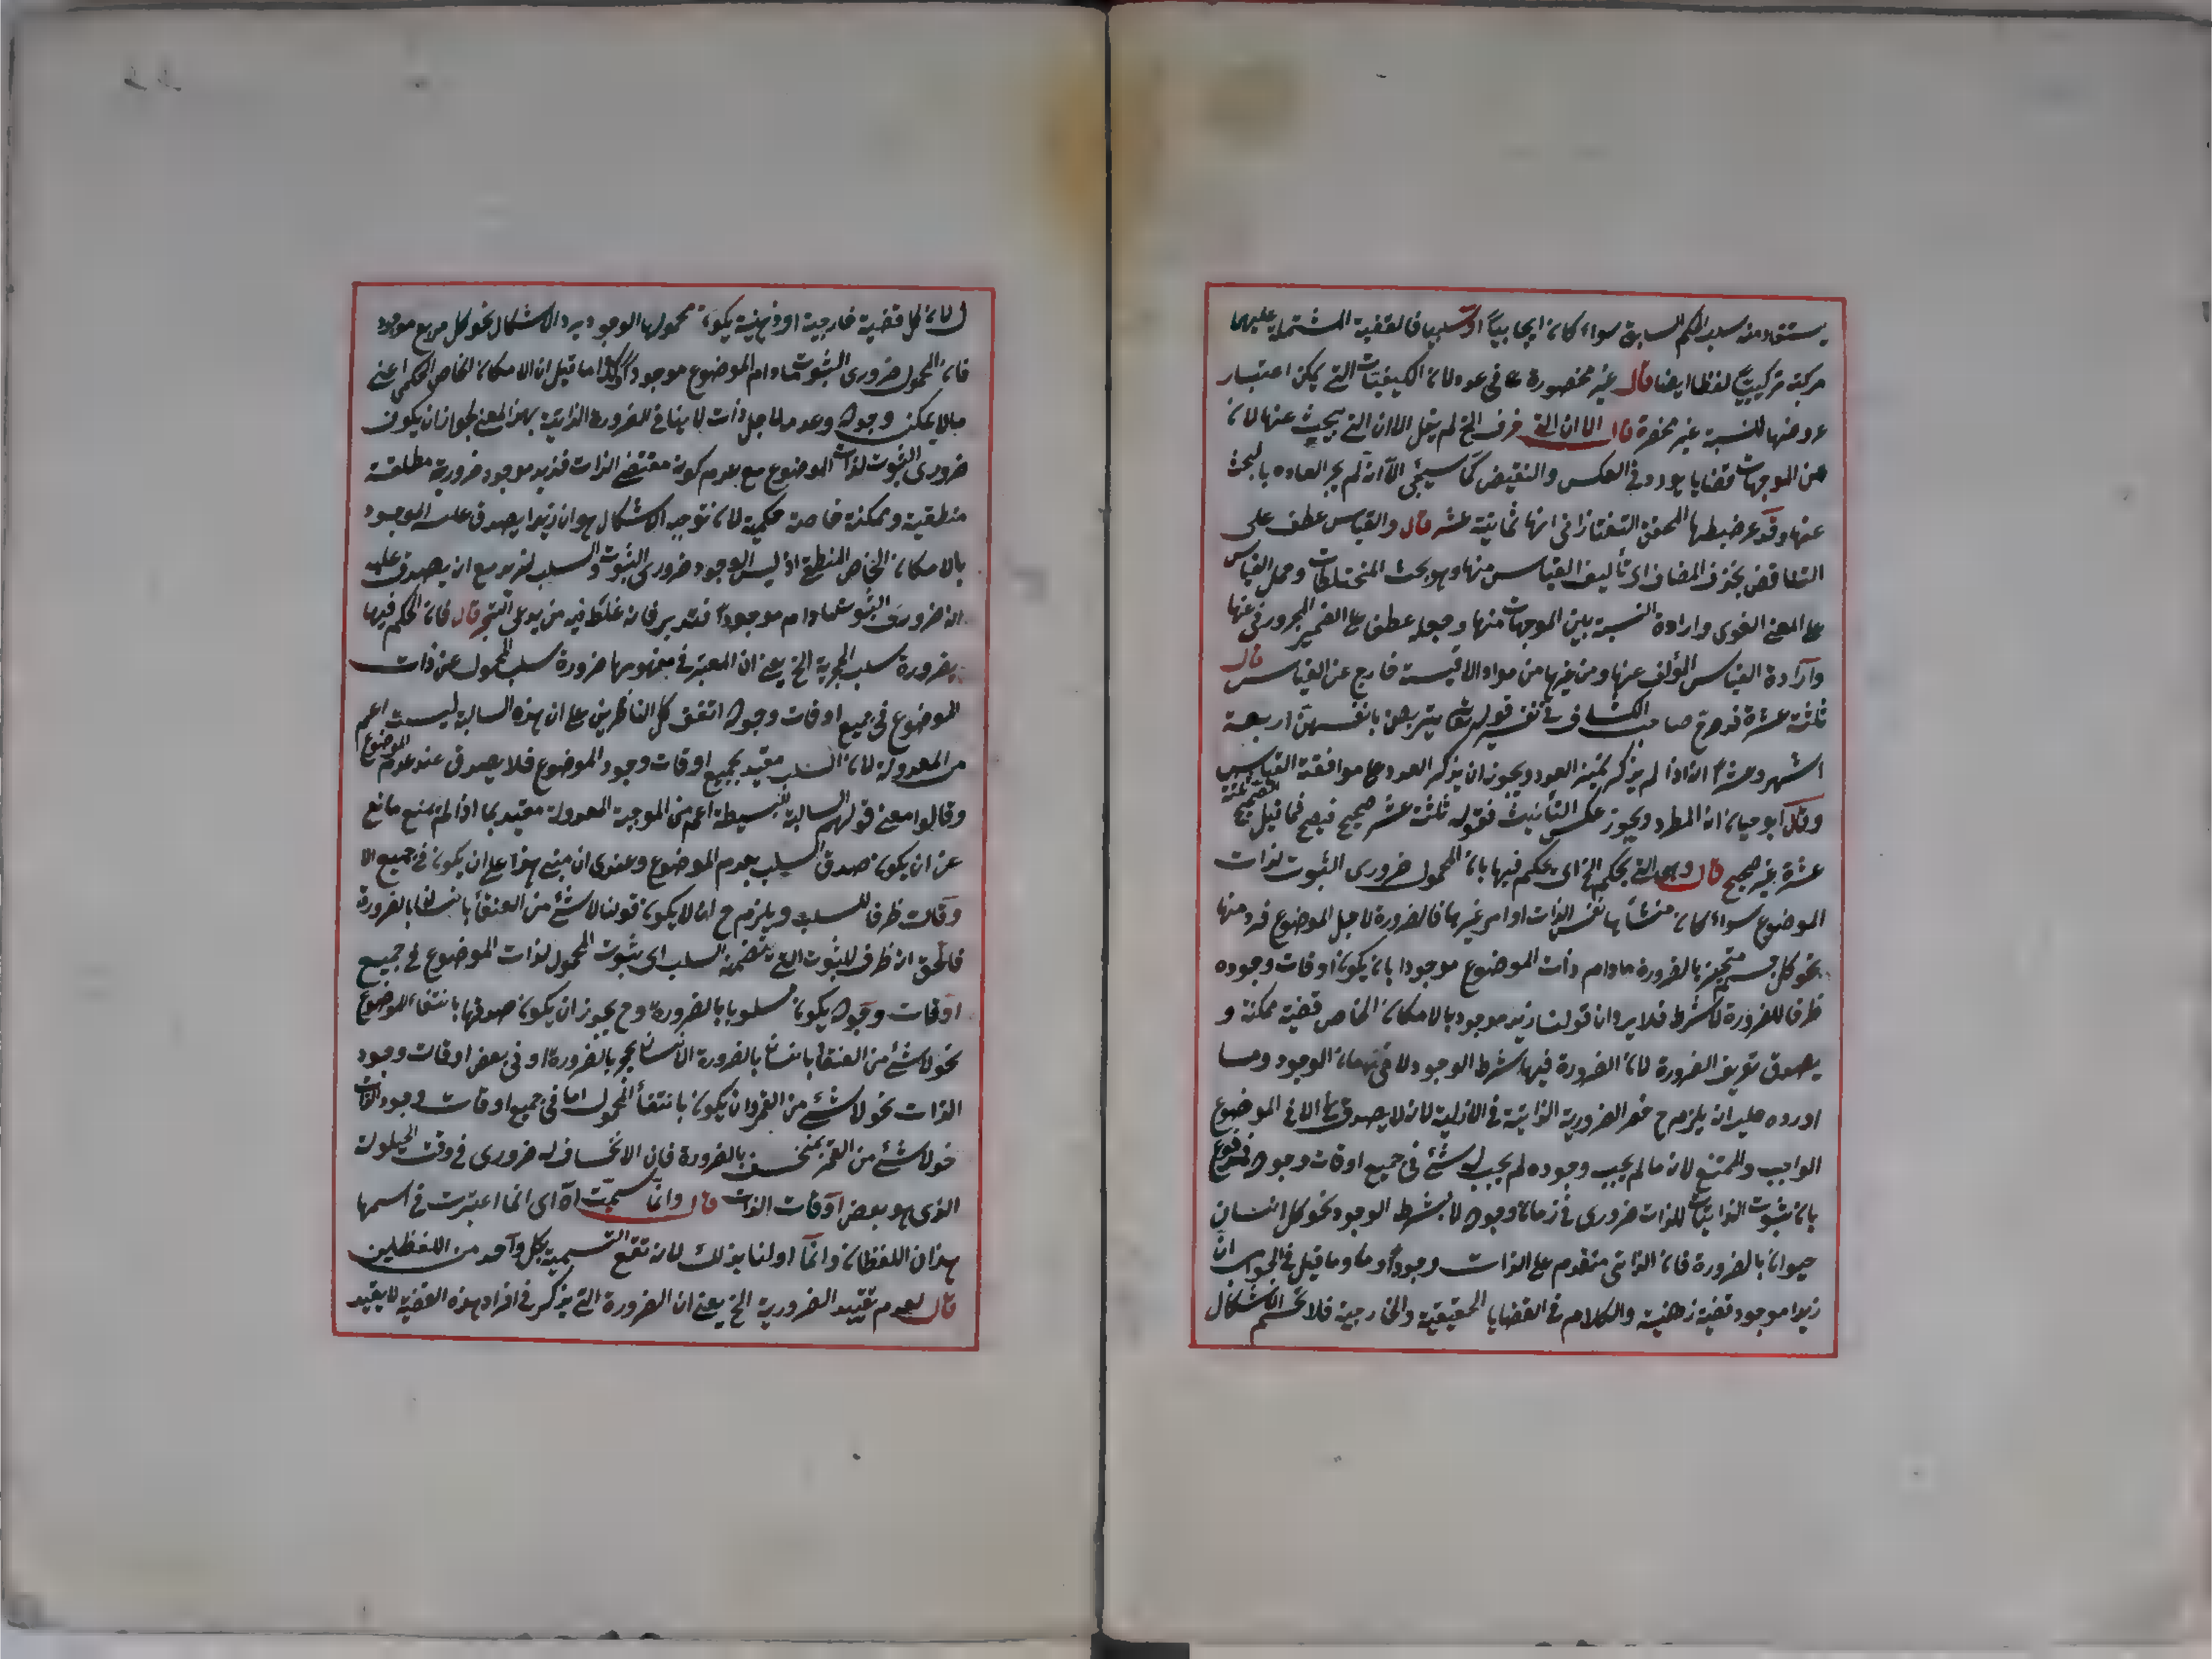 يستفاد منه سلب الحكم السابق سواء كان ايجابيا او سلبيا فالقضية المشتملة عليهما
مركبة تركيبيا لفظا ايضا قال غير محصورة في عدد لان الكيفيات التي يمكن اعتبار
عروضها للنسبة غير منحصرة قال الا ان التي الخ لم يقل الا ان التي يبحث عنها لان
من الموجهات قضايا يورد في العكس والنقيض كما سيجئ الا انه لم يجر العاده بالبحث
عنها وقد ضبطها المحقق التفتازاني انها ثمانية عشر قال والقياس عطف على
التناقض بحذف المضاف اى تأليف القياس منها وهو بحث المختلطات وحمل القياس
على المعنى اللغوى وارادة النسبة بين الموجهات منها وجعله عطف على الضمير المجرور في عنها
وارادة القياس المؤلف عنها ومن غيرها من مواد الاقيسة خارج عن القياس قال
ثلثة عشرة صاحب الكشاف في تفسير قوله تعالى يتربصن بانفسهن اربعة
اشهر وعشرا انه اذا لم يذكر مميز العدد ويجوز ان يذكر العدد على موافقة القياس
وقال ابو حيان انه المطرد ويجوز عكس التأنيث فقوله ثلثة عشر صحيح فما قيل الصحيح ثلثة
عشرة غير صحيح قال وهى التي يحكم الخ اى يحكم فيها بان المحمول ضرورى الثبوت لذات
الموضوع سواء كان منشأها نفس الذات او امر غيرها فالضرورة لاجل الموضوع فرد منها
نحو كل جسم متحيز بالضرورة مادام ذات الموضوع موجودا بان يكون اوقات وجوده
ظرفا للضرورة لا شرط فلا يرد ان قولنا زيد موجود بالامكان الخاص قضية ممكنة و
يصدق تعريف الضرورة لان الضرورة فيها بشرط الوجود لا في زمان الوجود وما
اورده عليه انه يلزم ح حصر الضرورية الذاتية في الازلية لانه لا يصدق الا في الموضوع
الواجب والممتنع لان ما لم يجب وجوده لم يجب له شئ في جميع اوقات وجوده فمدفوع
بان ثبوت الذاتيات للذات ضرورى في زمان وجوده لا بشرط الوجود نحو كل انسان
حيوان بالضرورة فان الذاتي متقدم على الذات وجودا وما قيل في الجواب ان
زيدا موجود قضية ذهنية والكلام في القضايا الحقيقية والخارجية فلا تحسم الاشكال
لان كل قضية خارجية او ذهنية يكون محمولها الوجود يرد الاشكال نحو كل مربع موجود
فان المحمول ضرورى الثبوت مادام الموضوع موجودا وكذا ما قيل ان الامكان الخاص الحكمى اعنى
مالا يمكن وجوده وعدمه لاجل ذات لا ينافي للضرورة الذاتية بهذا المعنى لجواز ان يكون
ضرورى الثبوت لذات الموضوع مع عدم كونه مقتضى الذات فزيد موجود ضرورية مطلقة
منطقية وممكنة خاصة حكمية لان توجيه الاشكال هو ان زيدا يصدق عليه الوجود
بالامكان الخاص المنطقى اذ ليس الوجود ضرورى الثبوت والسلب لزيد مع ان يصدق عليه
انه ضرورى الثبوت مادام موجودا فتدبر فانه غلط فيه من يدعى التبحر قال فان الحكم فيها
بضرورة سلب الحجرية الخ يعنى ان المعتبر في مفهومها ضرورة سلب المحمول عن ذات
الموضوع في جميع اوقات وجوده اتفق كل الناظرين على ان هذه السالبة ليست اعم
من المعدولة لان السلب مقيد بجميع اوقات وجود الموضوع فلا يصدق عند عدم الموضوع
وقالوا معنى قولهم السالبة البسيطة اعم من الموجبة المعدولة مقيد بما اذا لم يمنع مانع
عن ان يكون صدق السلب بعدم الموضوع وعندى ان مبنى هذا على ان يكون في جميع الا
وقات ظرفا للسلب ويلزم ح ان لا يكون قولنا لا شئ من العنقاء بانسان بالضرورة
فالحق انه ظرف للثبوت الذى تضمنه السلب اى ثبوت المحمول لذات الموضوع في جميع
اوقات وجوده يكون مسلوبا بالضرورة وح يجوز ان يكون صدقها بانتفاء الموضوع
نحو لا شئ من العنقا بانسان بالضرورة الانسان بحجر بالضرورة او في بعض اوقات وجود
الذات نحو لا شئ من القمر وان يكون بانتفاء المحمول اما في جميع اوقات وجود الذات
نحو لا شئ من القمر بمنخسف بالضرورة فان الانخساف له ضرورى في وقت الحيلولة
الذى هو بعض اوقات الذات قال وانما سميت اه اى انما اعتبرت في اسمها
هذان اللفظان وانما اولنا بذلك لانه تقع التسمية بكل واحد من اللفظين
قال لعدم تقييد الضرورية الخ يعنى ان الضرورة التي يذكر في افراد هذه القضية لا يقيد